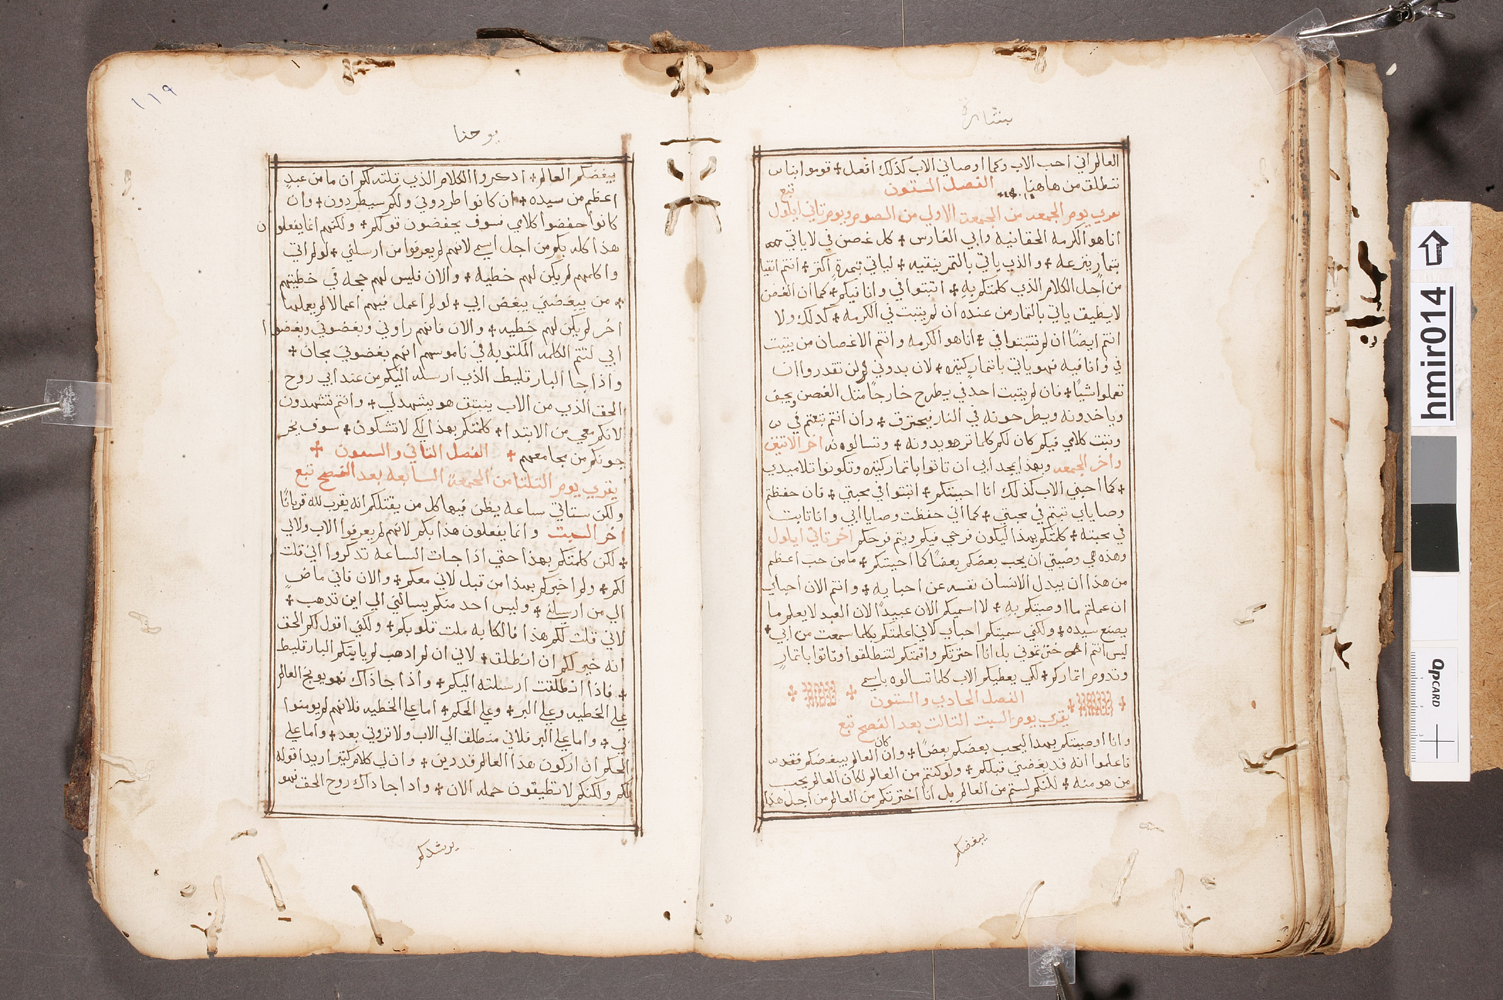 بشارة
العالم اني احب الاب وكما اوصاني الاب كذلك افعل + قوموا بنا
ننطلق من هاهنا الفصل الستون تبع
يقري يوم الجمعه من الجمعة الاولي من الصوم ويوم تاني ايلول
انا هو الكرمه الحقانيه وابي الغارس + كل غصن في لا ياتي
بثمار ينزعه + والذي ياتي بالثمر ينقيه + لياتي بثمرة اكثر + انتم انقيا
من اجل الكلام الذي كلمتكم به + اثبتوا في وانا فيكم + كما ان الغصن
لا يطيق ياتي بالثمار من عنده ان لم يثبت في الكرمه + كذلك ولا
انتم ايضا ان لم تثبتوا في + انا هو الكرمه وانتم الاغصان من يثبت
في وانا فيه فهو ياتي باثمار كثيره + لان بدوني لن تقدروا ان
تعملوا شيا + فان لم يثبت احد في يطرح خارجا مثل الغصن ويجف
وياخدونه ويطرحونه في النار فيحترق + وان انتم ثبتم في
وثبت كلامي فيكم كان لكم كلما تريدونه + وتسالونه اخر الاتنين
واخر الجمعه وبهذا يمجد ابي ان تاتوا باثمار كثيره وتكونوا تلاميدي
+ كما احبني الاب كذلك انا احببتكم + اثبتوا في محبتي + فان حفظتم
وصاياي ثبتم في محبتي + كما اني حفظت وصايا ابي وانا ثابت
في محبته + كلمتكم بهذا ليكون فرحي فيكم ويتم فرحكم اخر تاني ايلول
وهذه هي وصيتي ان يحب بعضكم بعضا كما احببتكم + ما من حب اعظم
من هذا ان يبدل الانسان نفسه عن احبايه + وانتم الان احباي
ان عملتم ما اوصيتكم به + لا اسميكم الان عبيدا لان العبد لا يعلم ما
يصنع سيده + ولكني سميتكم احباي لاني اعلمتكم بكلما سمعت من ابي +
ليس انتم اخترتموني بل انا اخترتكم واقمتكم لتنطلقوا وتاتوا باثمار
وتدوم اثماركم + لكي يعطيكم الاب كلما تسالوه باسمي
الفصل الحادي والستون
يقري يوم السبت التالت بعد الفصح تبع
وانا اوصيتكم بهذا ليحب بعضكم بعضا + وان كان العالم يبغضكم
فاعلموا انه قد بغضني قبلكم + ولو كنتم من العالم لكان العالم يحب
من هو منه + لكنكم لستم من العالم بل انا اخترتكم من العالم من اجل هذا
يبغضكم
١١٩
يوحنا
يبغضكم العالم + ادكروا الكلام الذي قلته لكم ان ما من عبد
اعظم من سيده + ان كانوا طردوني ولكم سيطردون + وان
كانوا حفضوا كلامي سوف يحفضون قولكم + ولكنهم انما يفعلون
هذا كله بكم من اجل اسمي لانهم لم يعرفوا من ارسلني + لو لم اتي
واكلمهم لم يكن لهم خطيه + والان فليس لهم حجه في خطيتهم
+ من يبغضني يبغض ابي + لو لم اعمل فيهم اعمالا لم يعملها
اخر لم يكن لهم خطيه + والان فانهم راوني وبغضوني وبغضوا
ابي لتتم الكلمه المكتوبه في ناموسهم انهم بغضوني مجان +
واذا جا البارقليط الذي ارسله اليكم من عند ابي روح
الحق الذي من الاب ينبثق هو يشهد لي + وانتم تشهدون
لانكم معي من الابتدا + كلمتكم بهذا لكي لا تشكون + سوف يخر
جونكم من مجامعهم + الفصل التاني والستون +
يقري يوم التلتا من الجمعة السابعه بعد الفصح تبع
ولكن ستاتي ساعه يظن فيها كل من يقتلكم انه يقرب لله قربانا
اخر السبت وانما يفعلون هذا بكم لانهم لم يعرفوا الاب ولا لي
+ لكن كلمتكم بهذا حتي اذا جات الساعه تدكروا اني قلت
لكم + ولم اخبركم بهذا من قبل لاني معكم + والان فاني ماض
الي من ارسلني + وليس احد منكم يسالني الي اين تدهب +
لاني قلت لكم هذا فالكابه ملت قلوبكم + ولكني اقول لكم الحق
انه خير لكم ان انطلق + لاني ان لم ادهب لم ياتيكم البارقليط
+ فاذا انطلقت ارسلته اليكم + واذا جا ذاك فهو يوبخ العالم
علي الخطيه وعلي البر + وعلي الحكم + اما علي الخطيه فلانهم لم يومنوا
بي + واما علي البر فلاني منطلق الي الاب ولا تروني بعد + واما علي
الحكم ان اركون هذا العالم قد دين + وان لي كلام كثير اريد اقوله
لكم ولكنكم لا تطيقون حمله الان + واداجا داك روح الحق فهو
يرشدكم
hmir014
QpCARD